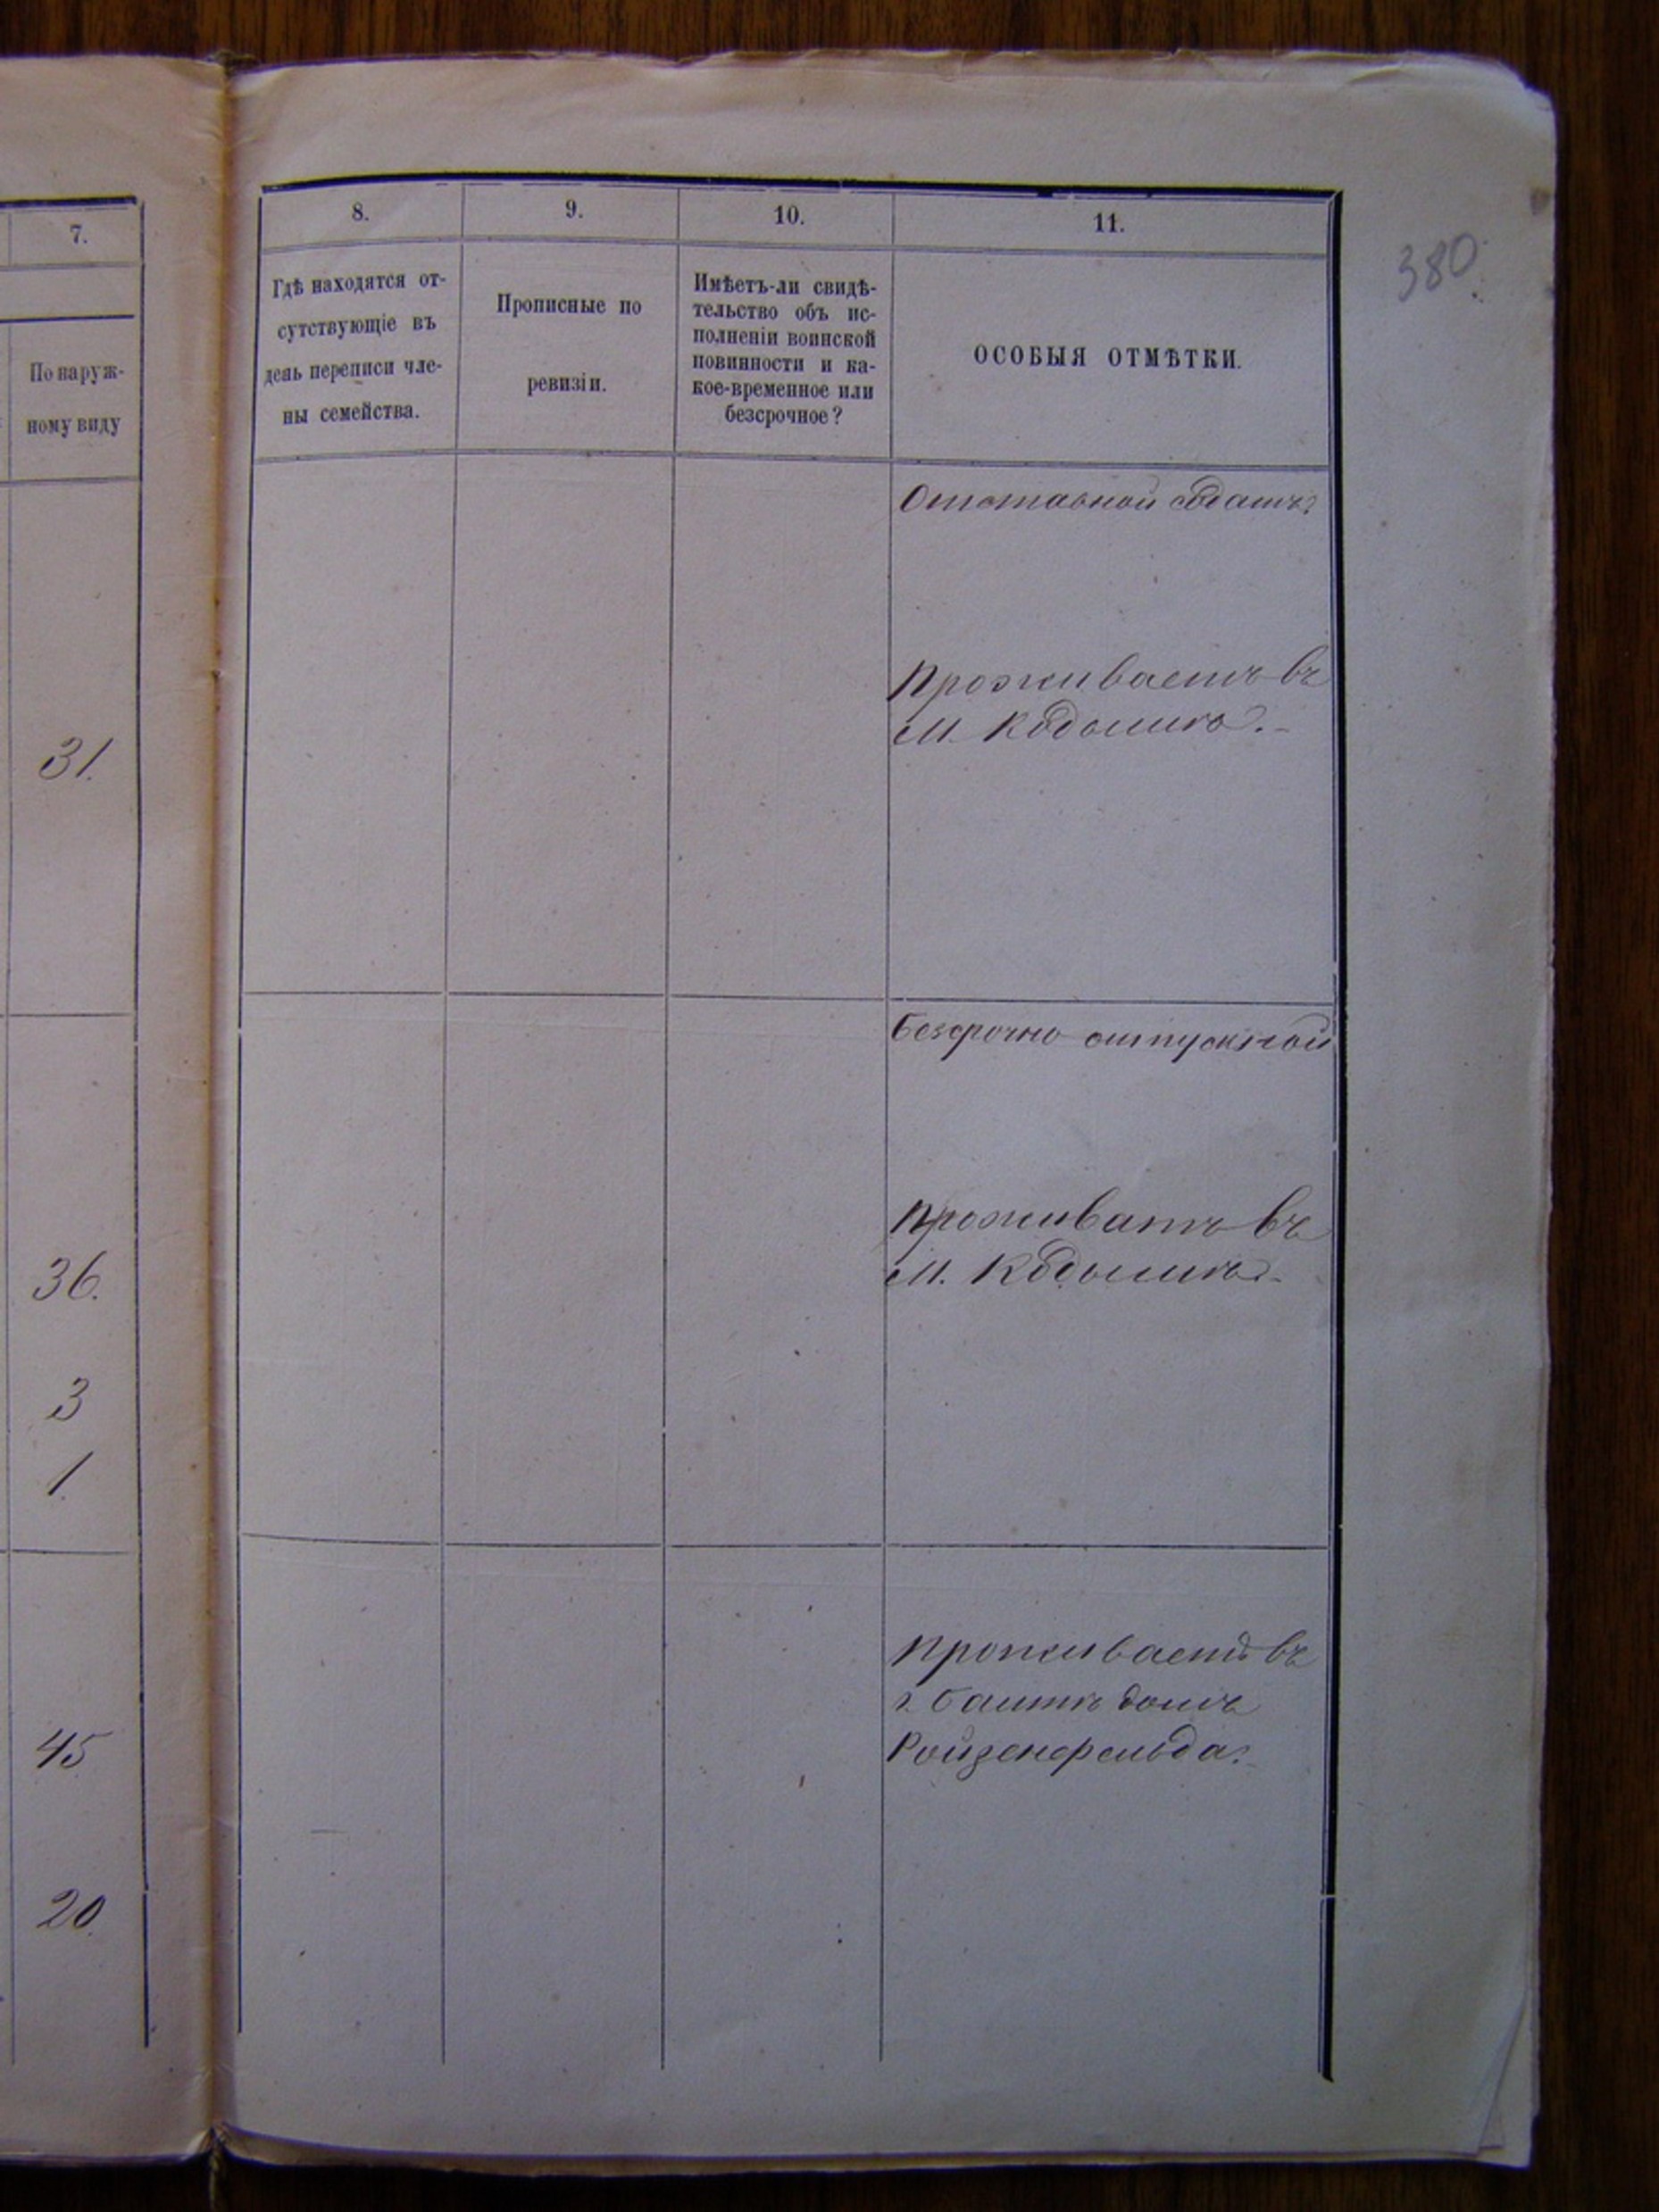 7.
По наруж-
ному виду
31.
36.
3
1.
45
20.
380.
8.
9.
10.
11.
Гдѣ находятся от-
сутствующіе въ
день переписи чле-
ны семейства.
Прописные по
ревизіи.
Имѣетъ-ли свидѣ-
тельство объ ис-
полненіи воинской
повинности и ка-
кое-временное или
безсрочное?
ОСОБЫЯ ОТМѢТКИ.
Отставной солдатъ.
Проживаетъ въ
м. Кодымѣ.
Безсрочно отпускной
Проживатъ въ
м. Кодымѣ.
Проживаетъ въ
г. Балтѣ домъ
Ройзенфельда.